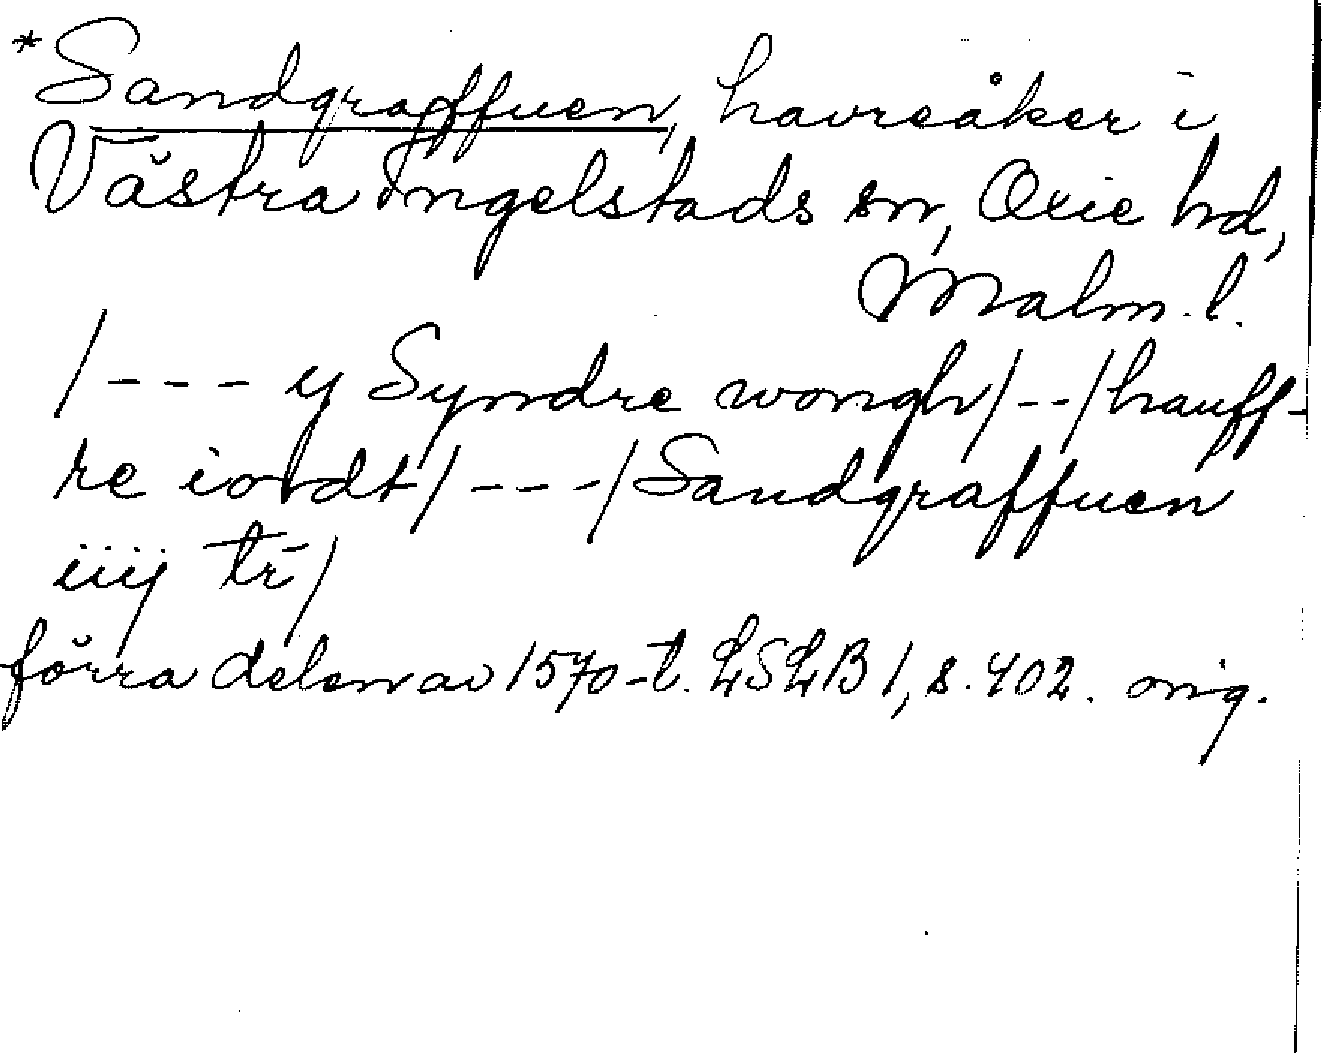 *Sandgraffuen, havreåker i
Västra Ingelstads sn, Oxie hd,
Malm. l.
/--- y Syndre wongh/--/hauff-
re iordt/---/Sandgraffuen
iiij tr̄/
förra delen av 1570-t. LSLB 1, s. 402. orig.